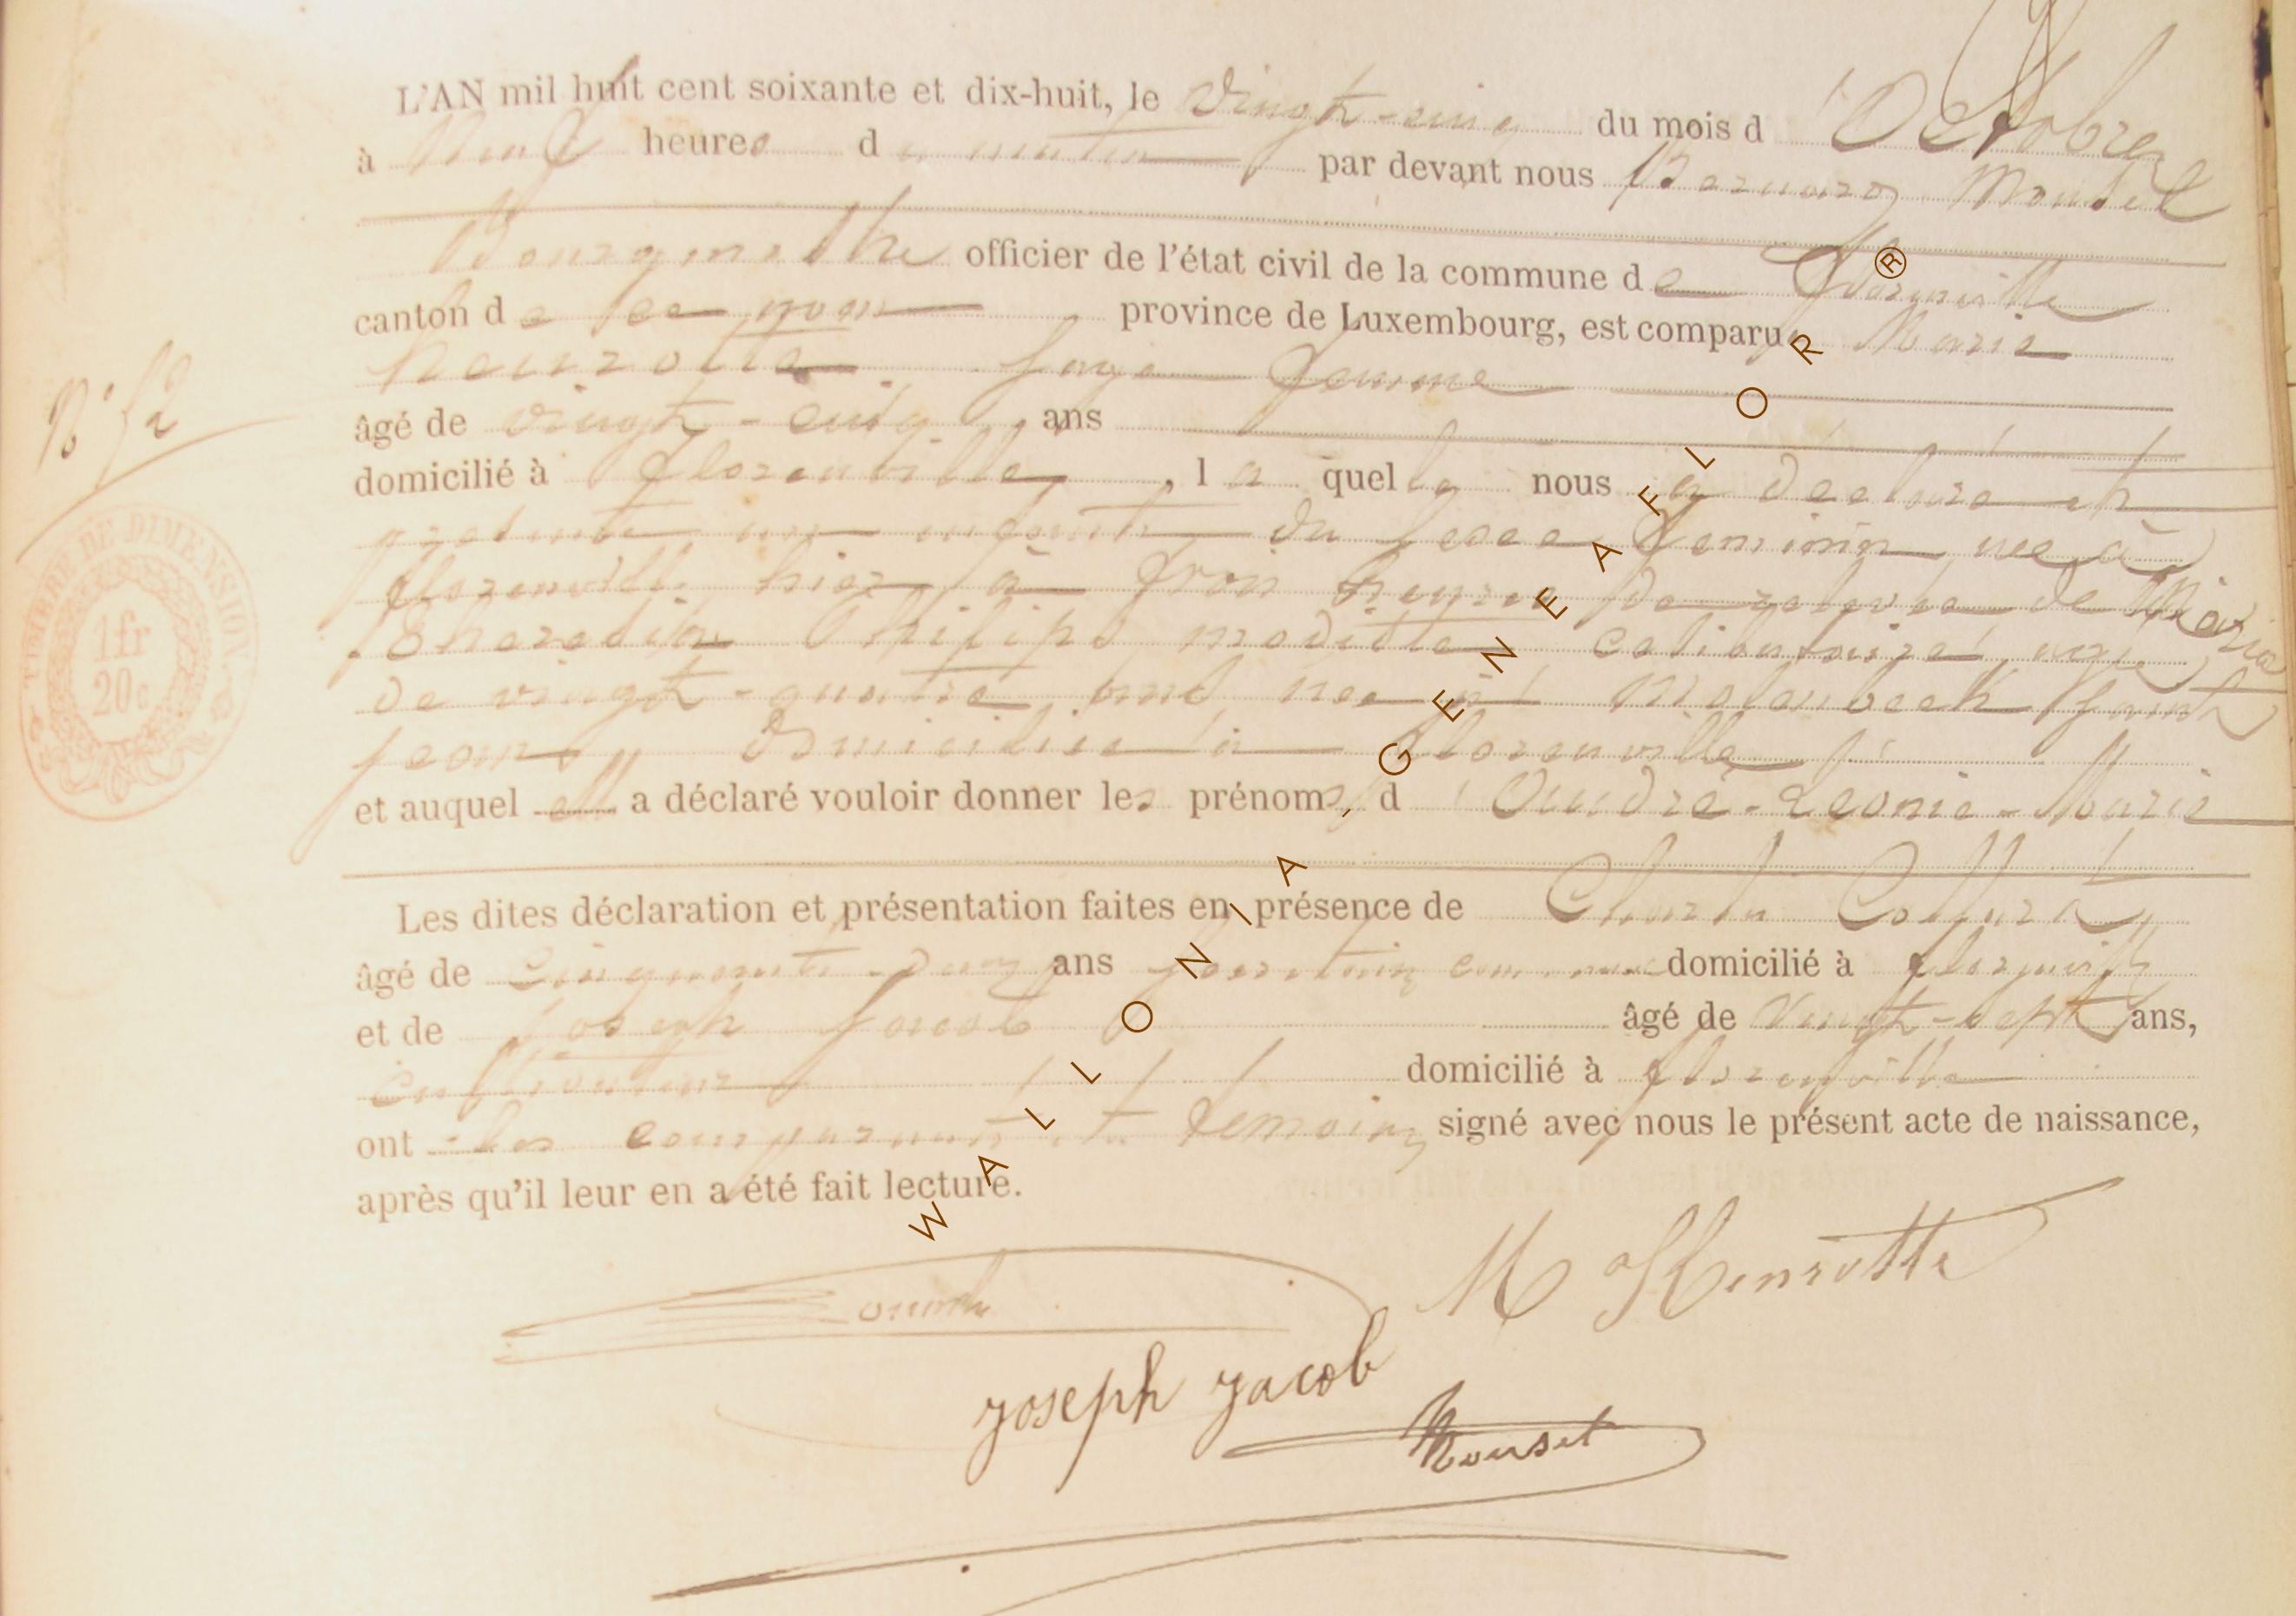 L'AN mil huit cent soixante et dix-huit, le Vingt-cinq du mois d'Octobre
à Neuf heures du matin par devant nous Bernard Mousel
Bourgmestre officier de l'état civil de la commune de Florenville
canton de ce nom province de Luxembourg, est comparu Marie
Henrotte sage femme
âgé de vingt-cinq ans
domicilié à Florenville, laquelle nous a déclaré et
présenté un enfant du sexe féminin née à
Florenville hier à trois heures de de Marie
Philips modiste célibataire, âgée
de vingt-quatre ans née à Molenbeek Saint
Jean, domiciliée à Florenville
et auquel elle a déclaré vouloir donner les prénoms, d'Andrée-Léonie-Marie
Les dites déclaration et présentation faites en présence de Charles
âgé de Cinquante-deux ans domicilié à Florenville
et de Joseph Jacob âgé de Vingt-sept ans,
cultivateur domicilié à Florenville
ont les comparant et témoins signé avec nous le présent acte de naissance,
après qu'il leur en a été fait lecture.
M Henrotte
Joseph Jacob
N° 52
TIMBRE DE DIMENSION.
1 fr
20c
WALLONIA GENEAFLOR®